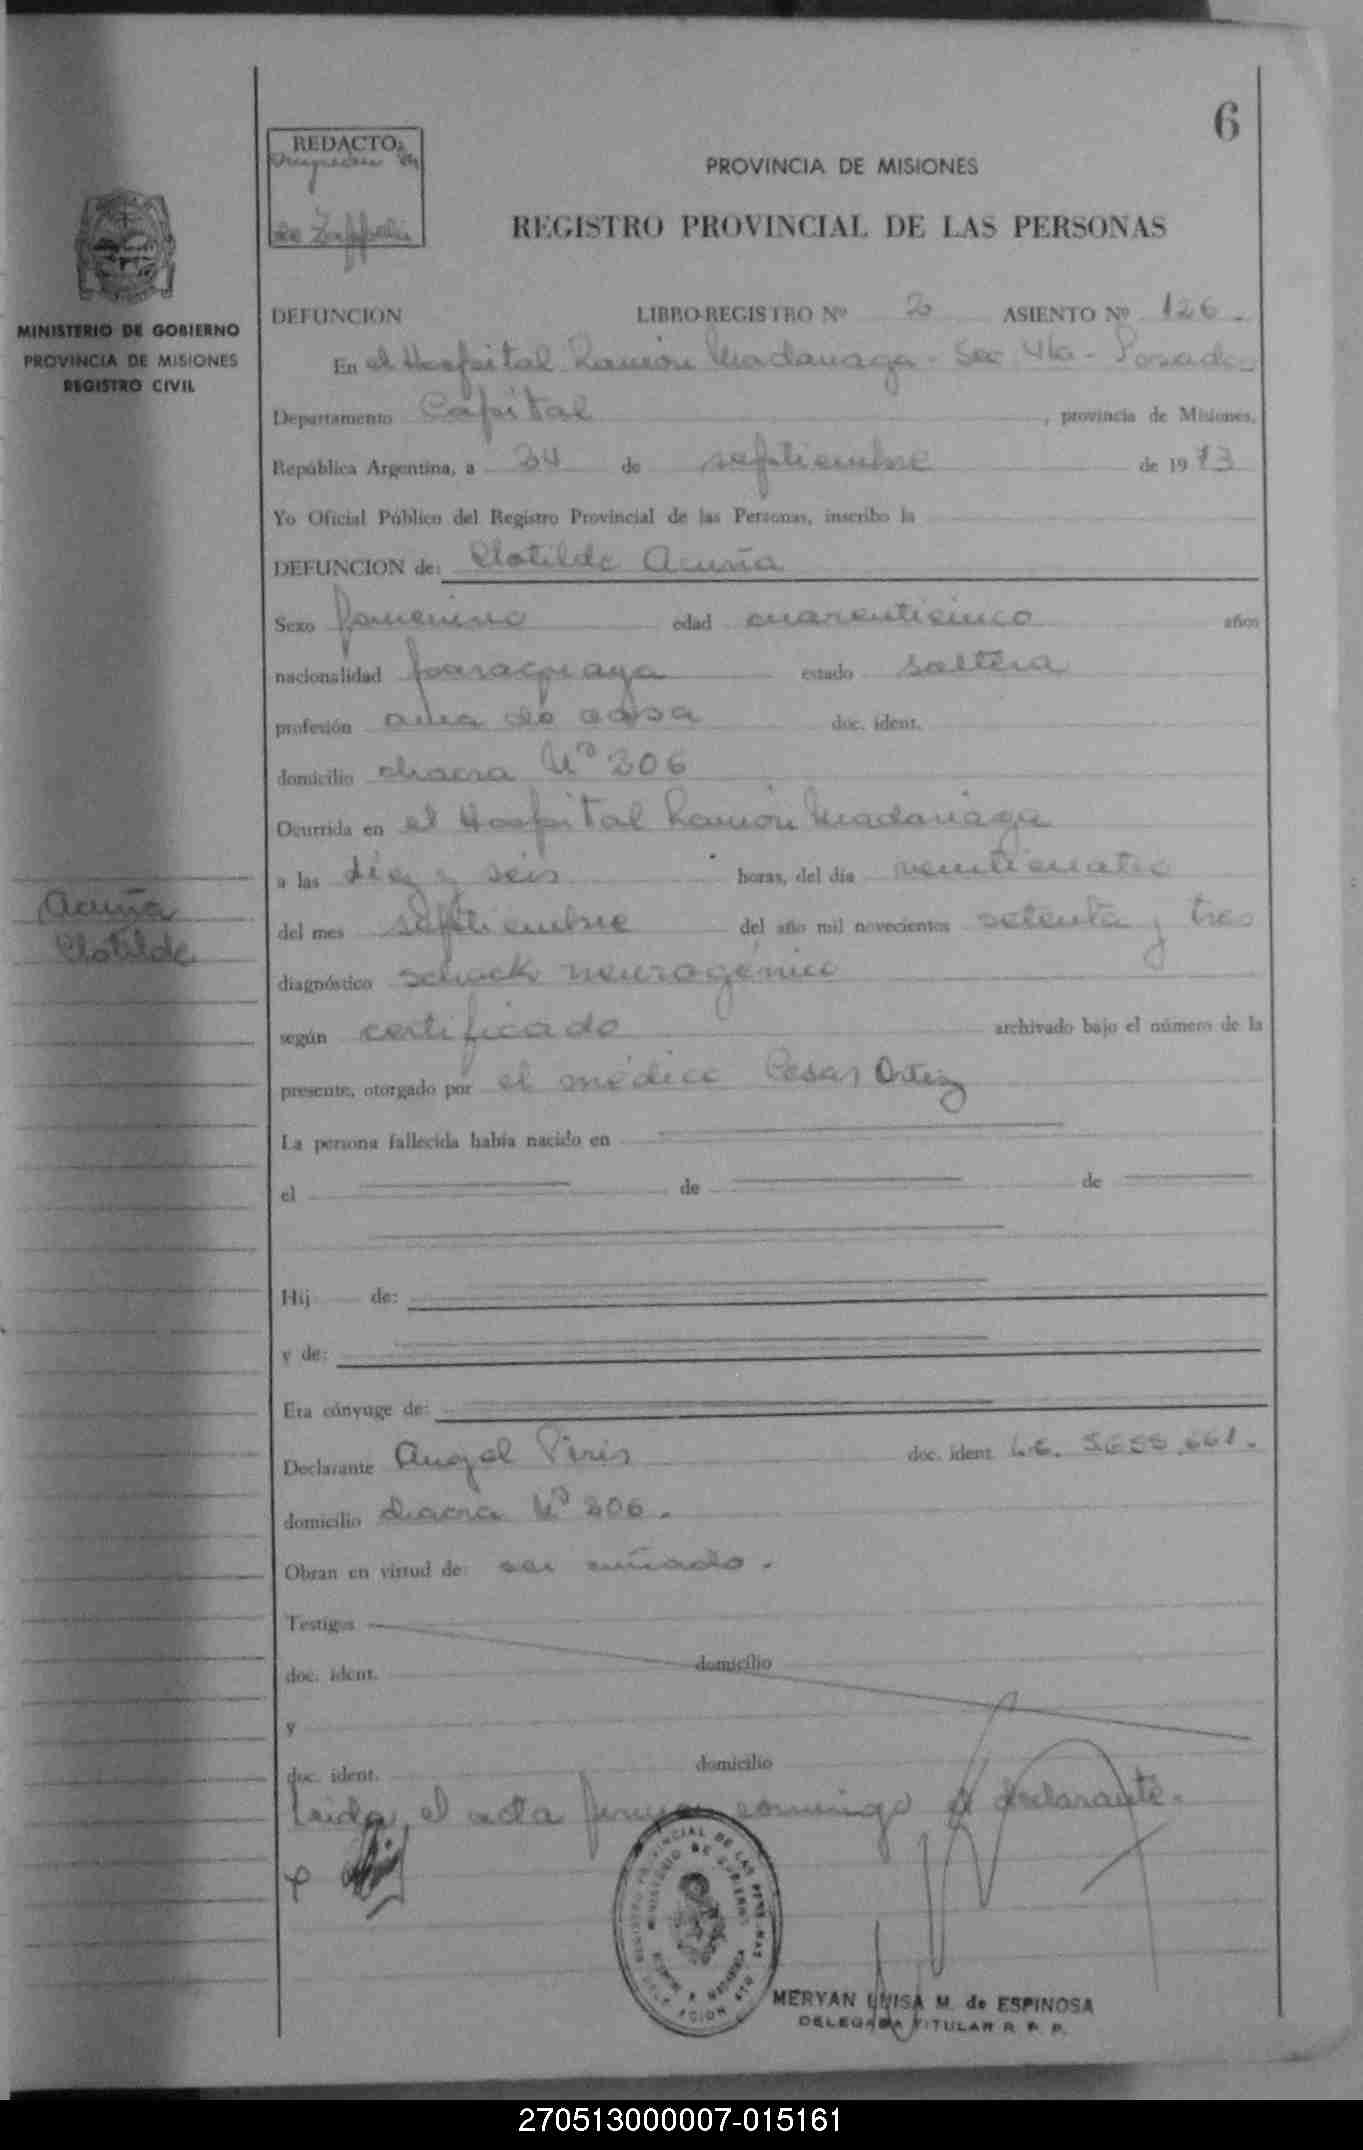 6
REDACTO:
de Zuppelli
PROVINCIA DE MISIONES
REGISTRO PROVINCIAL DE LAS PERSONAS
MINISTERIO DE GOBIERNO
PROVINCIA DE MISIONES
REGISTRO CIVIL
DEFUNCION LIBRO-REGISTRO Nº 2 ASIENTO Nº 126.
En el Hospital Ramón Madariaga - Sec. 4ta - Posadas
Departamento Capital, provincia de Misiones,
República Argentina, a 24 de septiembre de 1973
Yo Oficial Público del Registro Provincial de las Personas, inscribo la
DEFUNCION de: Clotilde Acuña
Sexo femenino edad cuarenticinco años
nacionalidad paraguaya estado soltera
profesión ama de casa doc. ident.
domicilio chacra Nº 206
Ocurrida en el Hospital Ramón Madariaga
a las diez y seis horas, del día veinticuatro
Acuña
Clotilde
del mes septiembre del año mil novecientos setenta y tres
diagnóstico schock neurogénico
según certificado archivado bajo el número de la
presente, otorgado por el médico Cesar Ortiz
La persona fallecida había nacido en
el de de
Hij de:
y de:
Era cónyuge de:
Declarante Angel Piris doc. ident. L.E. 5.655.661.
domicilio chacra Nº 206.
Obran en virtud de: ser cuñado.
Testigos
doc. ident. domicilio
y
doc. ident. domicilio
Leida el acta firma conmigo el declarante.
REGISTRO PROVINCIAL DE LAS PERSONAS
MINISTERIO DE GOBIERNO
MERYAN LUISA M. de ESPINOSA
DELEGADA TITULAR R. P. P.
270513000007-015161